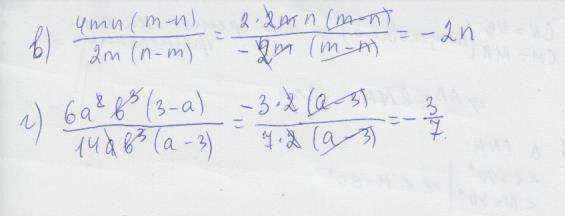 в) \frac{4mn(m-n)}{2m(n-m)} = \frac{2 \cdot 2m n (m-n)}{-2m (m-n)} = -2n
г) \frac{6a^2 b^3 (3-a)}{14a b^3 (a-3)} = \frac{-3 \cdot 2 (a-3)}{7 \cdot 2 (a-3)} = -\frac{3}{7}.